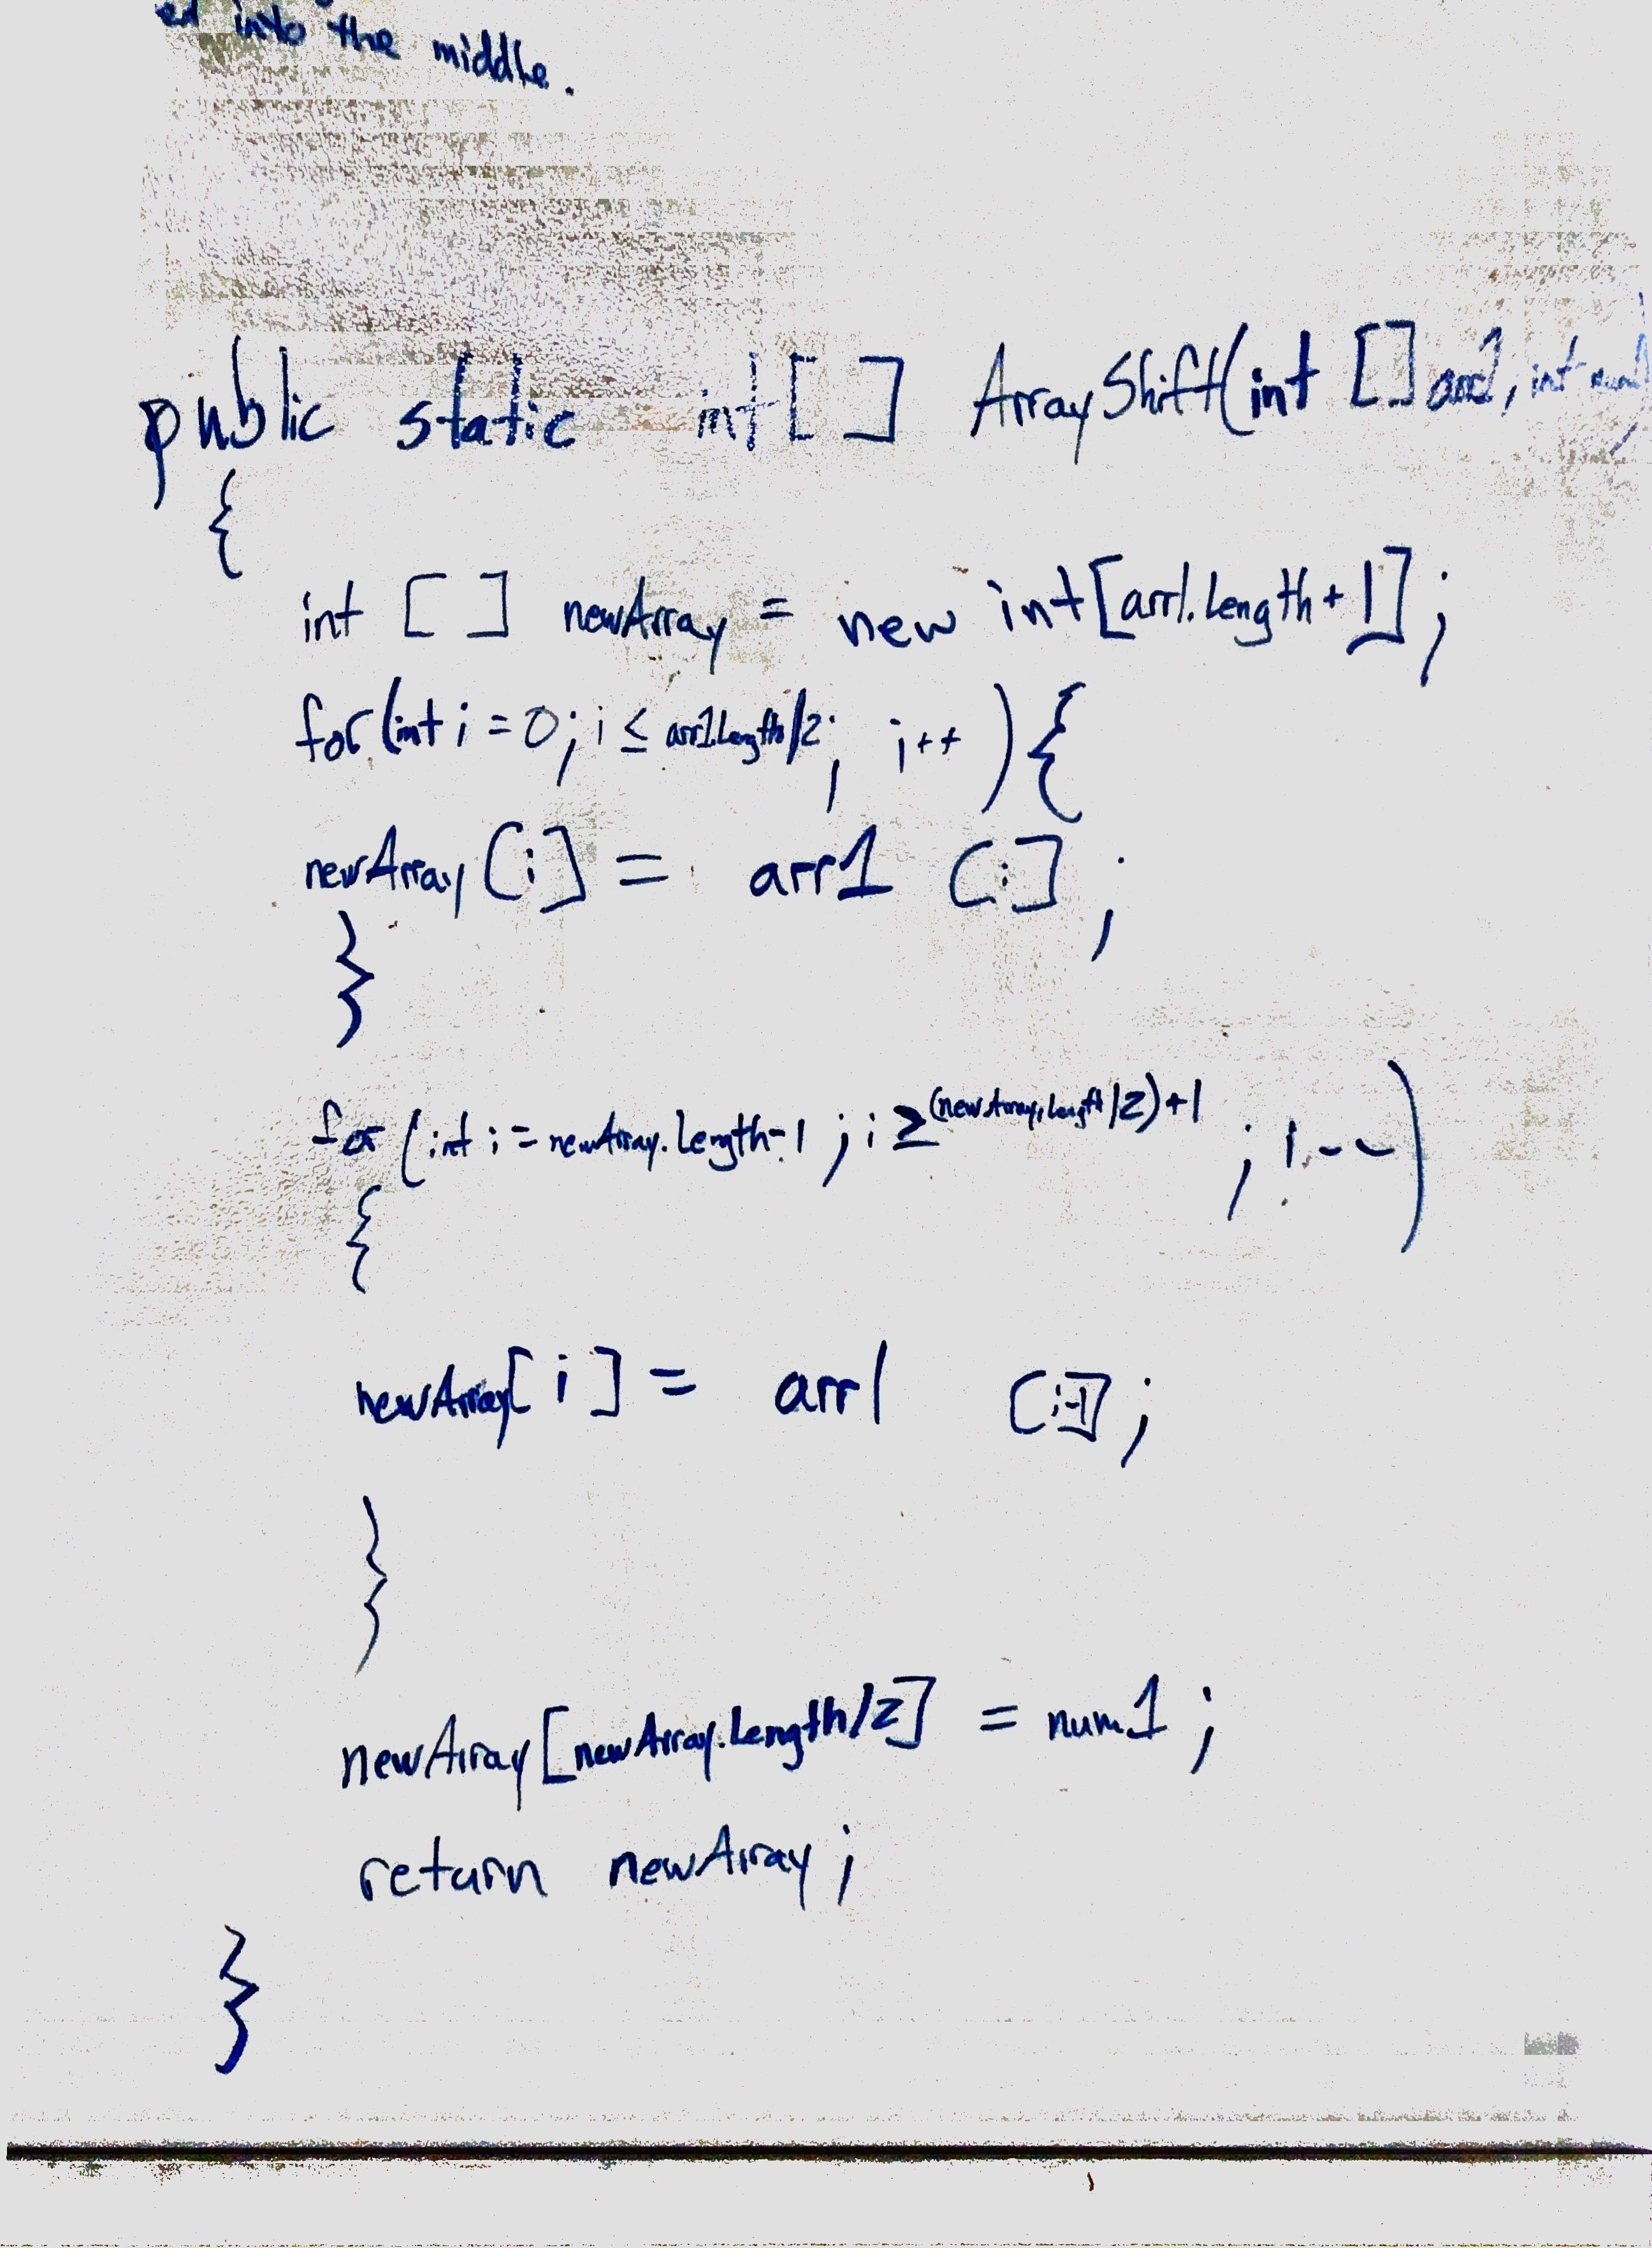 ed into the middle.
public static int[ ] ArrayShift(int [ ] arr1, int num1)
{
int [ ] newArray = new int[arr1.length+1];
for(int i = 0; i ≤ arr1.length/2; i++){
newArray[i] = arr1 [i];
}
for (int i = newArray.length-1; i ≥ (newArray.length/2)+1; i--)
{
newArray[i] = arr1 [i-1];
}
newArray[newArray.length/2] = num1;
return newArray;
}